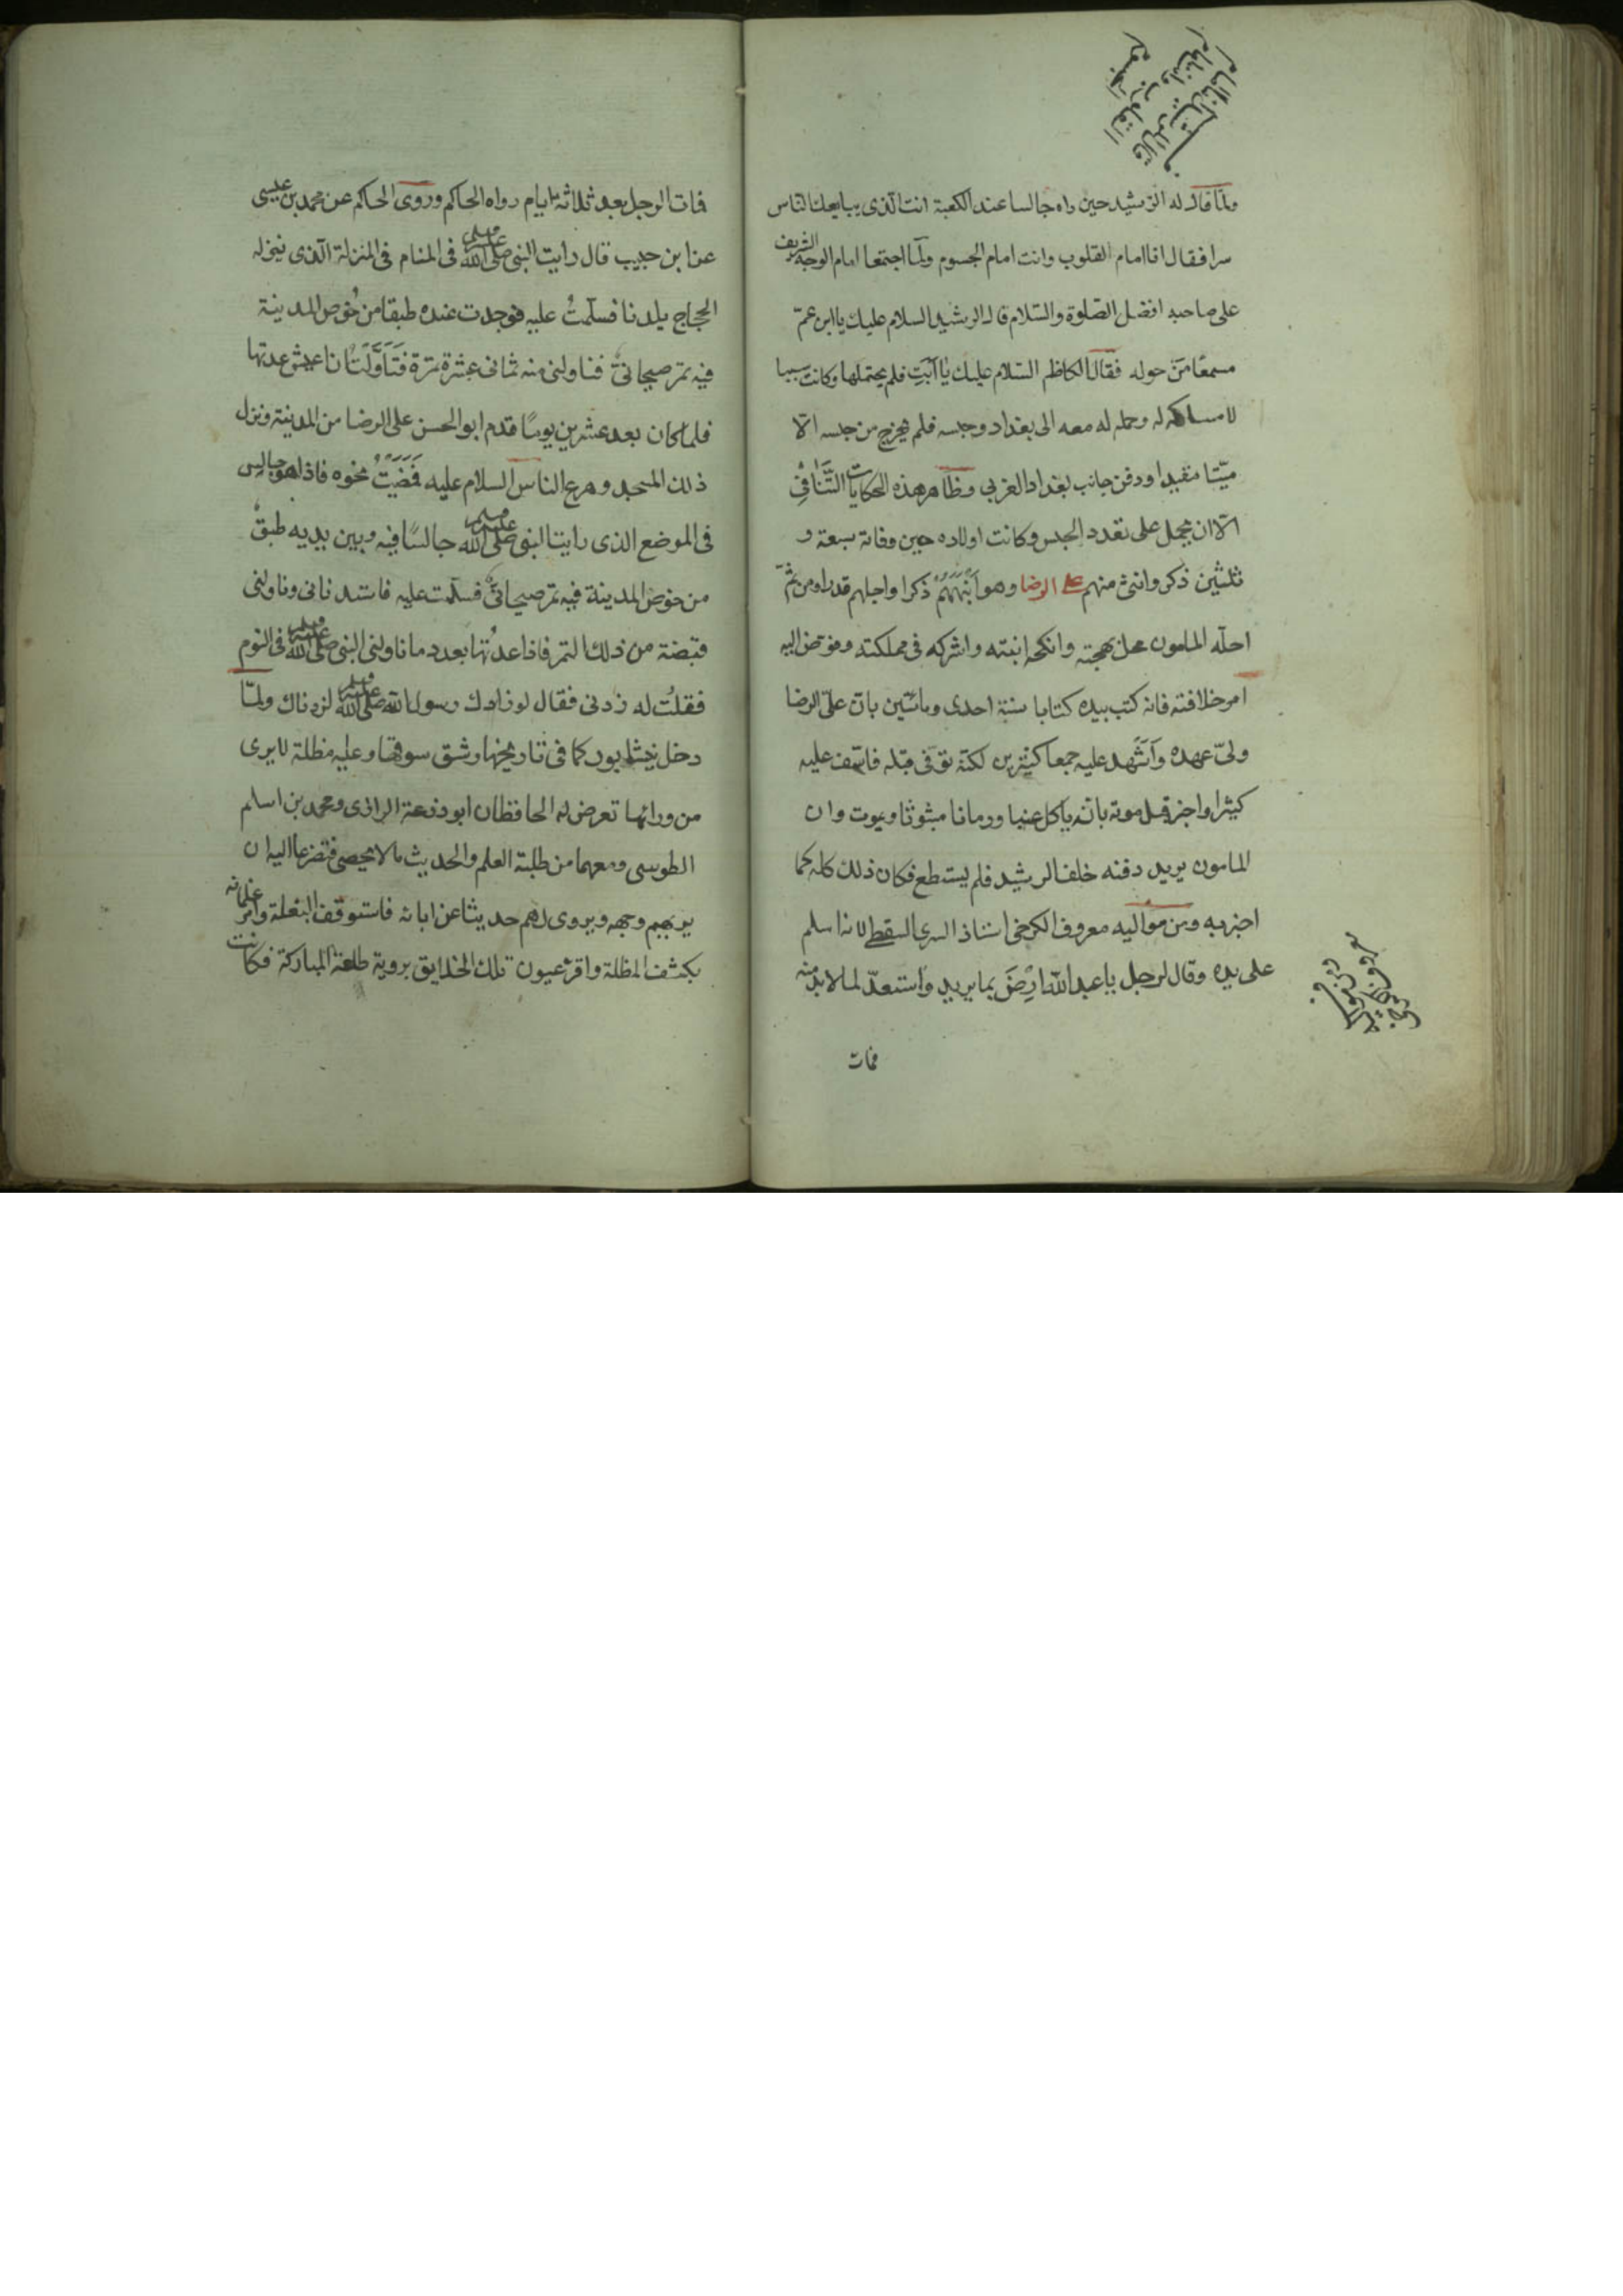 ولما قال له الرشيد حين راه جالسا عند الكعبة انت الذى يبايعك الناس
سرا فقال انا امام القلوب وانت امام الجسوم ولما اجتمعا امام الوجه الشريف
على صاحبه افضل الصلوة والسلام قال الرشيد السلام عليك يا ابن عم
مسمعا من حوله فقال الكاظم السلام عليك يا ابت فلم يحتملها وكانت سببا
لامساكه له وحمله له معه الى بغداد وحبسه فلم يخرج من حبسه الا
ميتا مقيدا ودفن جانب بغداد الغربى وظاهر هذه الحكايات التَّنَافِى
الا ان يحمل على تعدد الحبس وكانت اولاده حين وفاته سبعة و
ثلثين ذكر وانثى منهم على الرضا وهو اَنْبَهَهُمْ ذكرا واجلهم قدرا ومن ثمّ
احله المامون محل مهجته وانكحه ابنته واشركه فى مملكته وفوّض اليه
امر خلافته فانه كتب بيده كتابا سنة احدى ومائتين بان على الرضا
ولىّ عهده وَاَشْهد عليه جمعا كثيرين لكنه توفى قبله فاسّف عليه
كثيرا واخبر قبل موته بانه ياكل عنبا ورمانا مبثوثا ويموت وان
المامون يريد دفنه خلف الرشيد فلم يستطع فكان ذلك كله كما
اخبر به ومن مواليه معروف الكرخى استاذ السرى السقطى لانه اسلم
على يده وقال لرجل يا عبد الله ارضَ بما يريد واستعدّ لما لابد منه
فمات
فمات الرجل بعد ثلاثة ايام رواه الحاكم وروى الحاكم عن محمد بن عيسى
عن ابن حبيب قال رايت النبى صلى الله عليه وسلم فى المنام فى المنزلة الذى ينزله
الحجاج ببلدنا فسلّمتُ عليه فوجدت عنده طبقا من خُوص المدينة
فيه تمر صيحانىّ فناولنى منه ثمانى عشرة تمرة فَتَاَوَّلْتُ ان اعيش عدتها
فلما كان بعد عشرين يومًا قدم ابو الحسن على الرضا من المدينة ونزل
ذلك المسجد وهرع الناس السلام عليه فَمَضَيْتُ نحوه فاذا هو جالس
فى الموضع الذى رايت النبى صلى الله عليه وسلم جالسًا فيه وبين يديه طبقٌ
من خوص المدينة فيه تمر صيحانىٌّ فسلّمت عليه فاستدنانى وناولنى
قبضة من ذلك التمر فاذا عدتُها بعدد ما ناولنى النبى صلى الله عليه وسلم فى النوم
فقلتُ له زدنى فقال لو زادك رسول الله صلى الله عليه وسلم لزدناك ولمّا
دخل نيشابور كما فى تاريخها وشق سوقها وعليه مظلة لا يرى
من ورائها تعرض له الحافظان ابو زرعة الرازى ومحمد بن اسلم
الطوسى ومعهما من طلبة العلم والحديث ما لا يحصى فتضرعا اليه ان
يريهم وجهه ويروى لهم حديثا عن ابائه فاستوقف البغلة وامر غلمانه
بكشف المظلة واقر عيون تلك الخلايق بروية طلعته المباركة فكانت